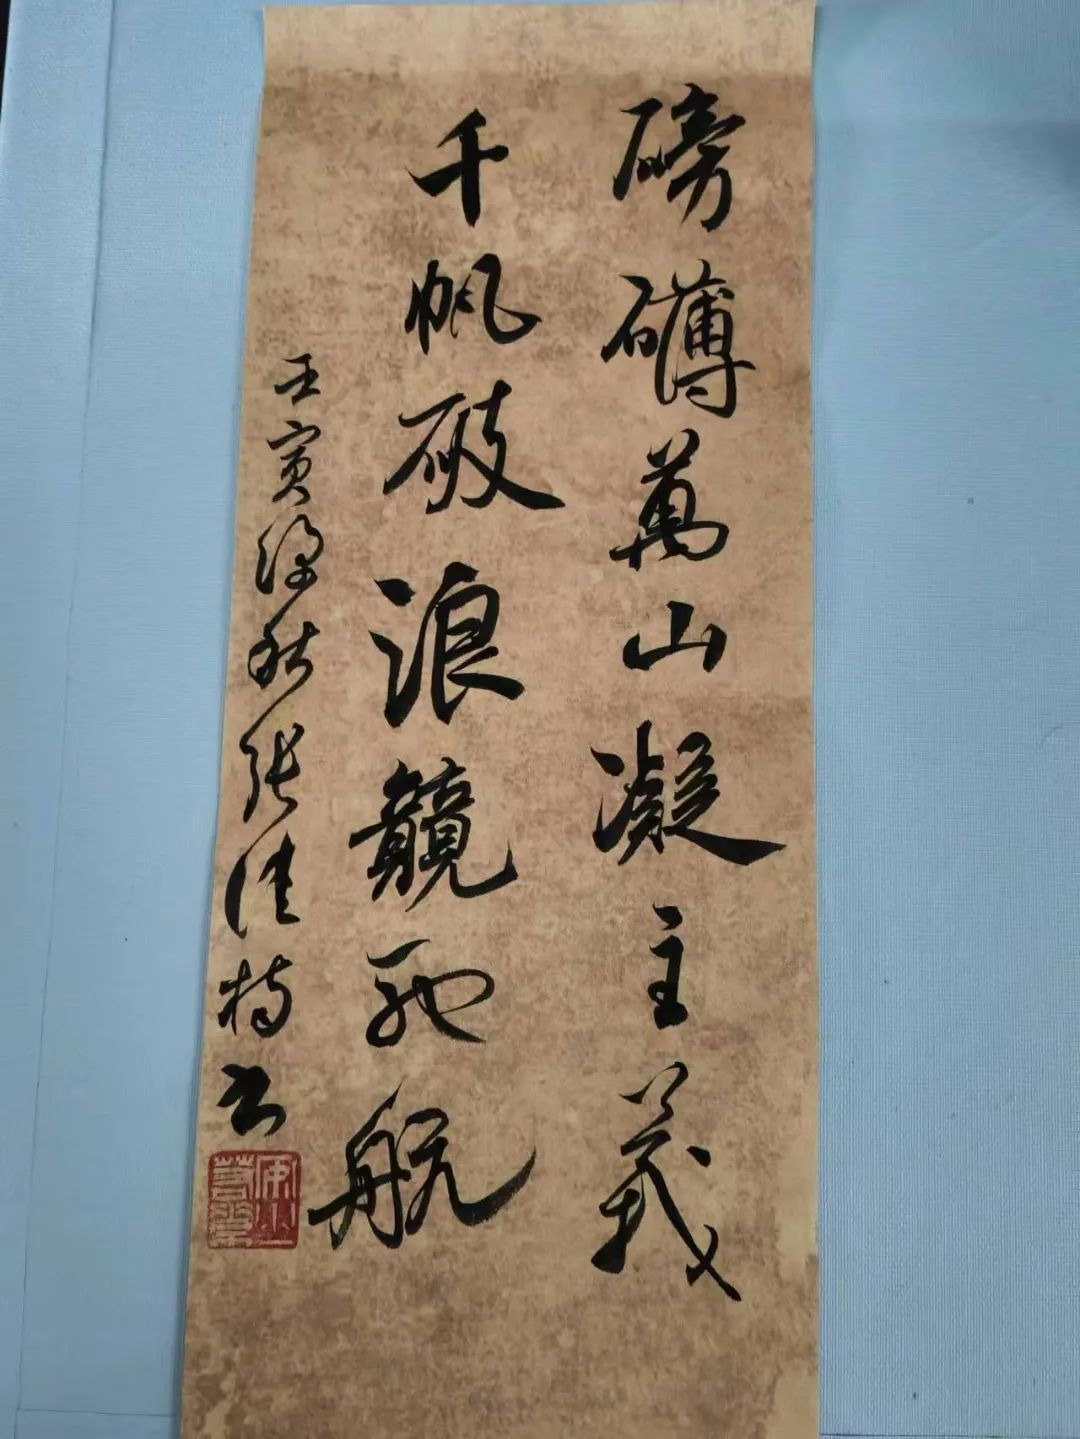 磅礴萬山凝主義
千帆破浪競駛航
壬寅深秋張佳楠書